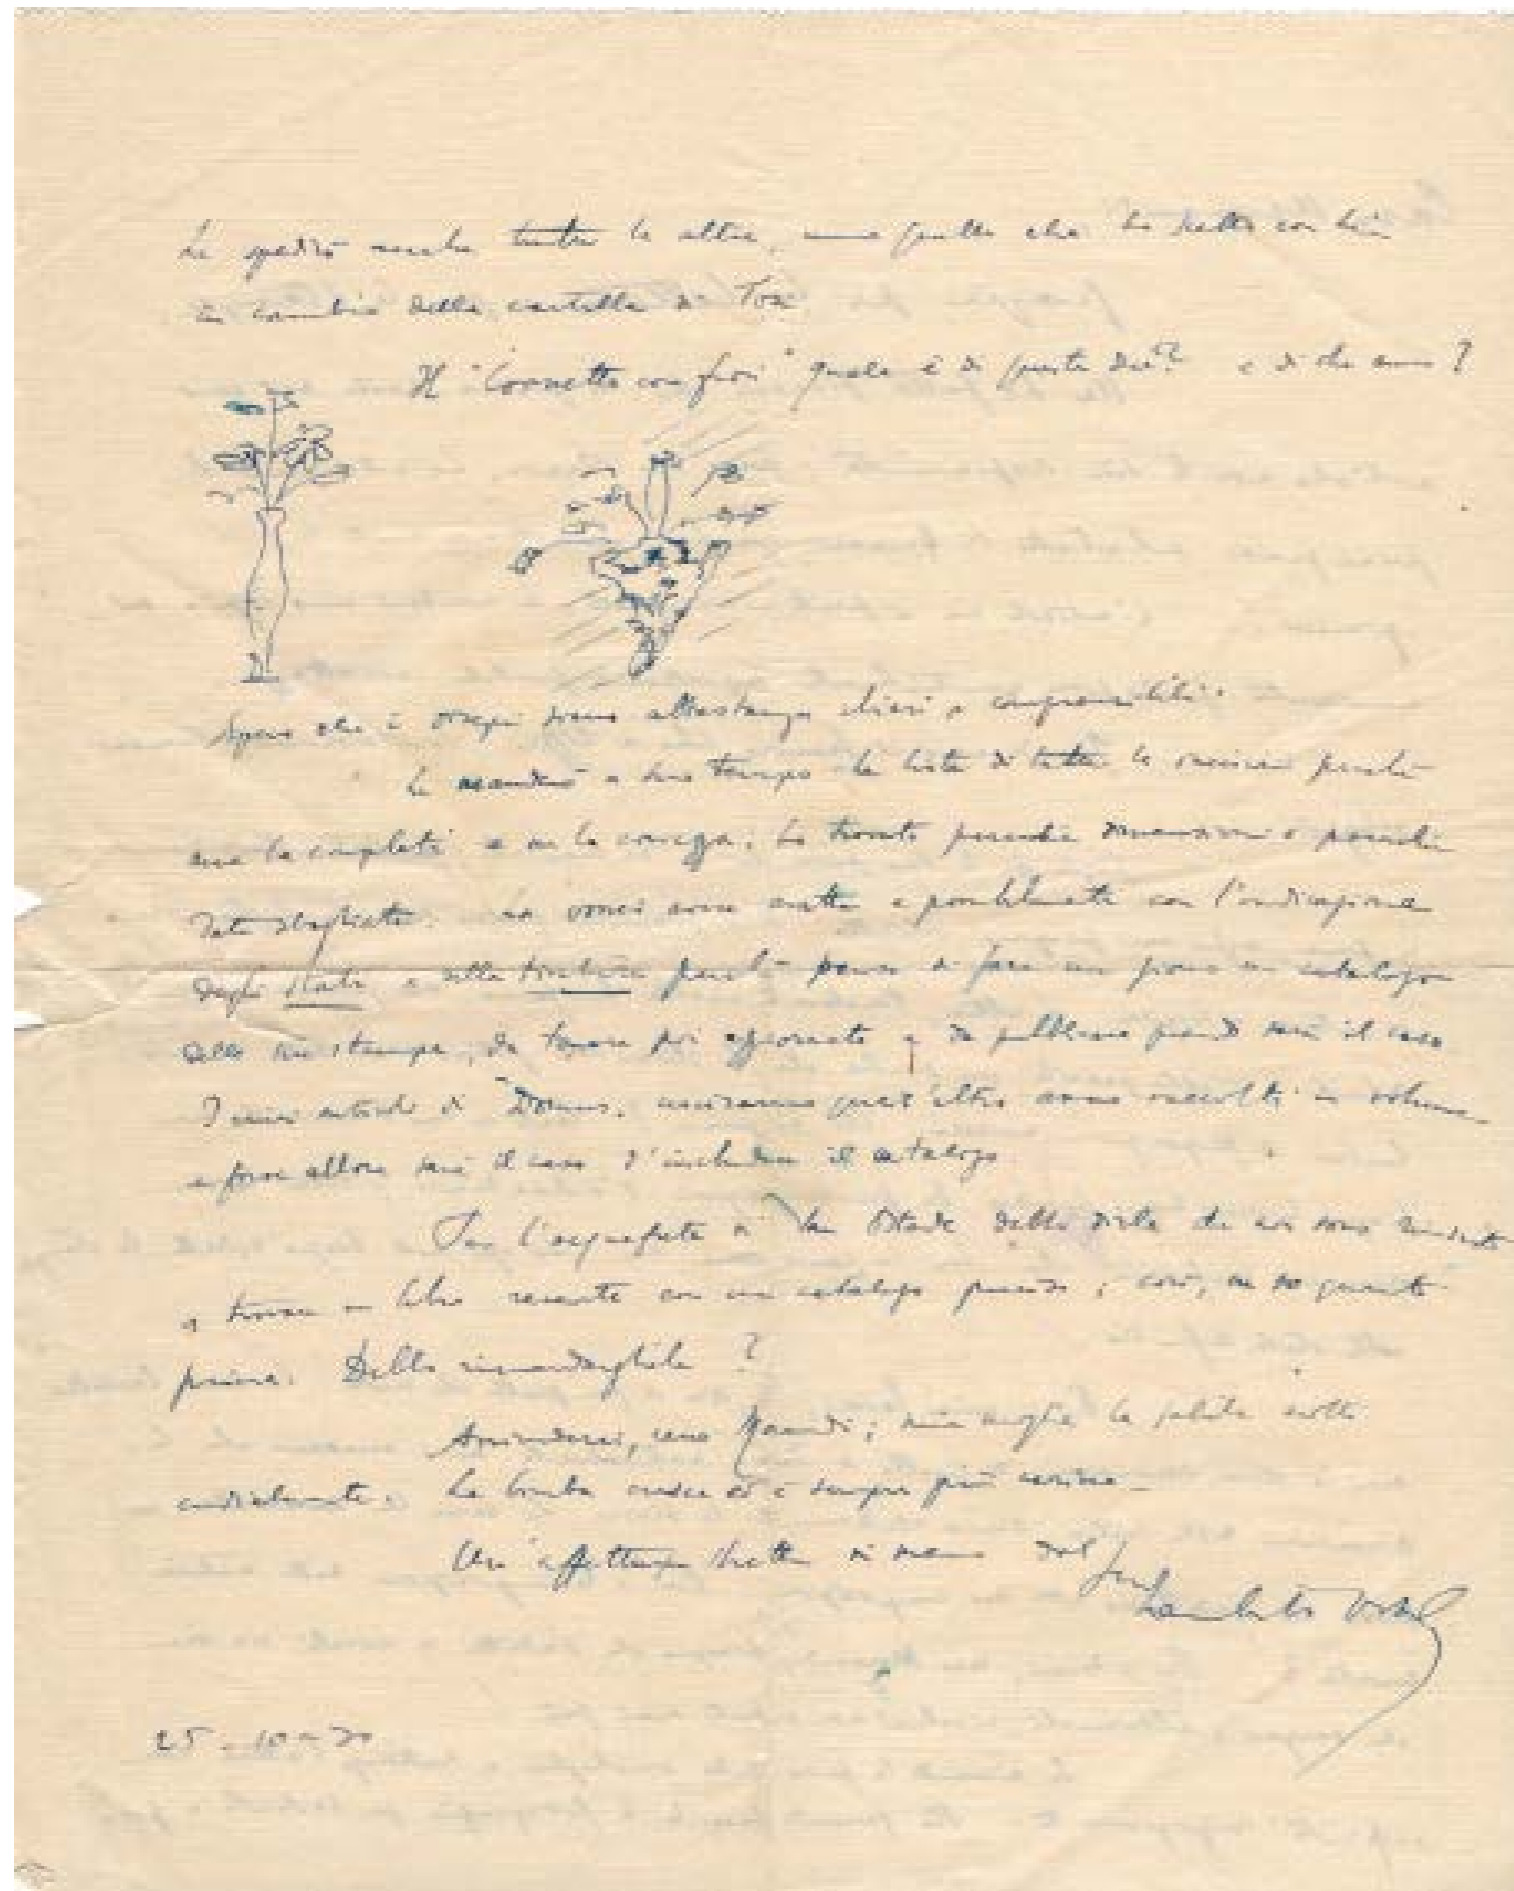 Le spedirò anche tutte le altre, meno quella che ho scelto con Lei
in cambio della cartella di Tosi
Il "Cornetto con fiori" quale è di queste due? e di che anno?
Spero che i disegni siano abbastanza chiari e comprensibili.
Le manderò a suo tempo la lista di tutte le incisioni perché
me la completi e me la corregga. Ho trovato parecchie dimensioni e parecchie
date sbagliate. La vorrei avere esatta e possibilmente con l'indicazione
degli stati e della tiratura perché penso di fare un giorno un catalogo
delle sue stampe, da tenere poi aggiornato e da pubblicare quando sarà il caso
I miei articoli di Domus. usciranno quest'altro anno raccolti in volume
e forse allora sarà il caso d'includere il catalogo
Per l'acquaforte di Van Ostade della che non sono riuscito
a trovare un libro recente con un catalogo preciso; così, ne so quanto
prima. Debbo rimandargliela?
Arrivederci, caro Morandi; mia moglie la saluta molto
cordialmente. La bimba cresce ed è sempre più carina.
Un' affettuosa stretta di mano dal suo
Lamberto Vitali
25-10-30